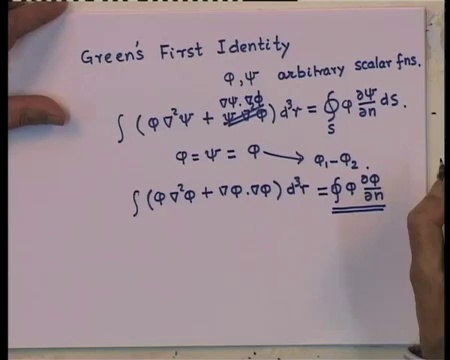 Green's First Identity
φ, ψ arbitrary scalar fns.
∇ψ.∇φ
∫ (φ ∇²ψ + ψ ∇²φ) d³r = ∮_S φ ∂ψ/∂n dS.
φ = ψ = φ → φ₁-φ₂.
∫ (φ ∇²φ + ∇φ.∇φ) d³r = ∮ φ ∂φ/∂n